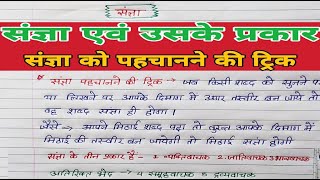 संज्ञा
संज्ञा एवं उसके प्रकार
संज्ञा को पहचानने की ट्रिक
* संज्ञा पहचानने की ट्रिक → जब किसी शब्द को सुनने पर
या लिखने पर आपके दिमाग में अगर तस्वीर बन जाये तो
वह शब्द संज्ञा ही होगा।
जैसे → आपने मिठाई शब्द पढ़ा तो तुरन्त आपके दिमाग में
मिठाई की तस्वीर बन जायेगी तो मिठाई संज्ञा होगी
संज्ञा के तीन प्रकार हैं - 1. व्यक्तिवाचक 2. जातिवाचक 3 भाववाचक
अतिरिक्त भेद → 4 समूहवाचक 5 द्रव्यवाचक